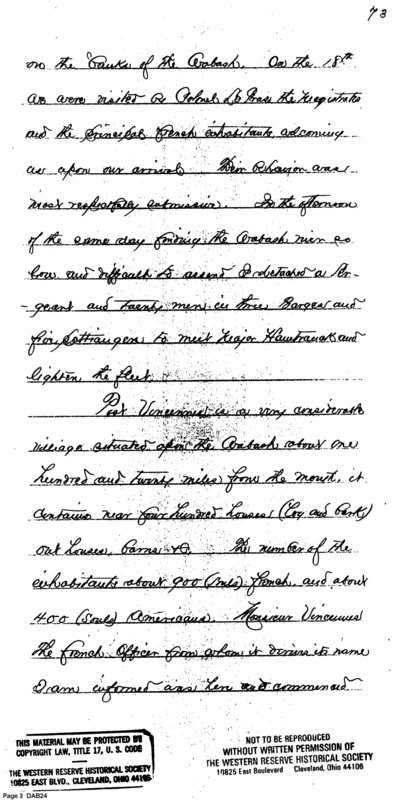 73
on the Banks of the Wabash. On the 18th
we were visited by Colonel Le Gras the Magistrate
and the principal french inhabitants, welcoming
us upon our arrival. Their behavior was
most respectfully submissive. In the afternoon
of the same day finding the Wabash river so
low and difficult to ascend I detached a Ser-
-geant and twenty men in three Barges and
five pettiaugers to meet Major Hamtramck and
lighten the fleet.
Post Vincennes is a very considerable
village situated upon the Wabash about one
hundred and twenty miles from the mouth, it
contains near four hundred houses (Log and bark)
out houses, barns &c. The number of the
inhabitants about 900 (souls) french, and about
400 (souls) Americans. Monsieur Vincennes
the french Officer from whom it derives its name
I am informed was here and commenced
THIS MATERIAL MAY BE PROTECTED BY
COPYRIGHT LAW, TITLE 17, U. S. CODE
THE WESTERN RESERVE HISTORICAL SOCIETY
10825 EAST BLVD., CLEVELAND, OHIO 44106
NOT TO BE REPRODUCED
WITHOUT WRITTEN PERMISSION OF
THE WESTERN RESERVE HISTORICAL SOCIETY
10825 East Boulevard Cleveland, Ohio 44106
Page 3 DAB24